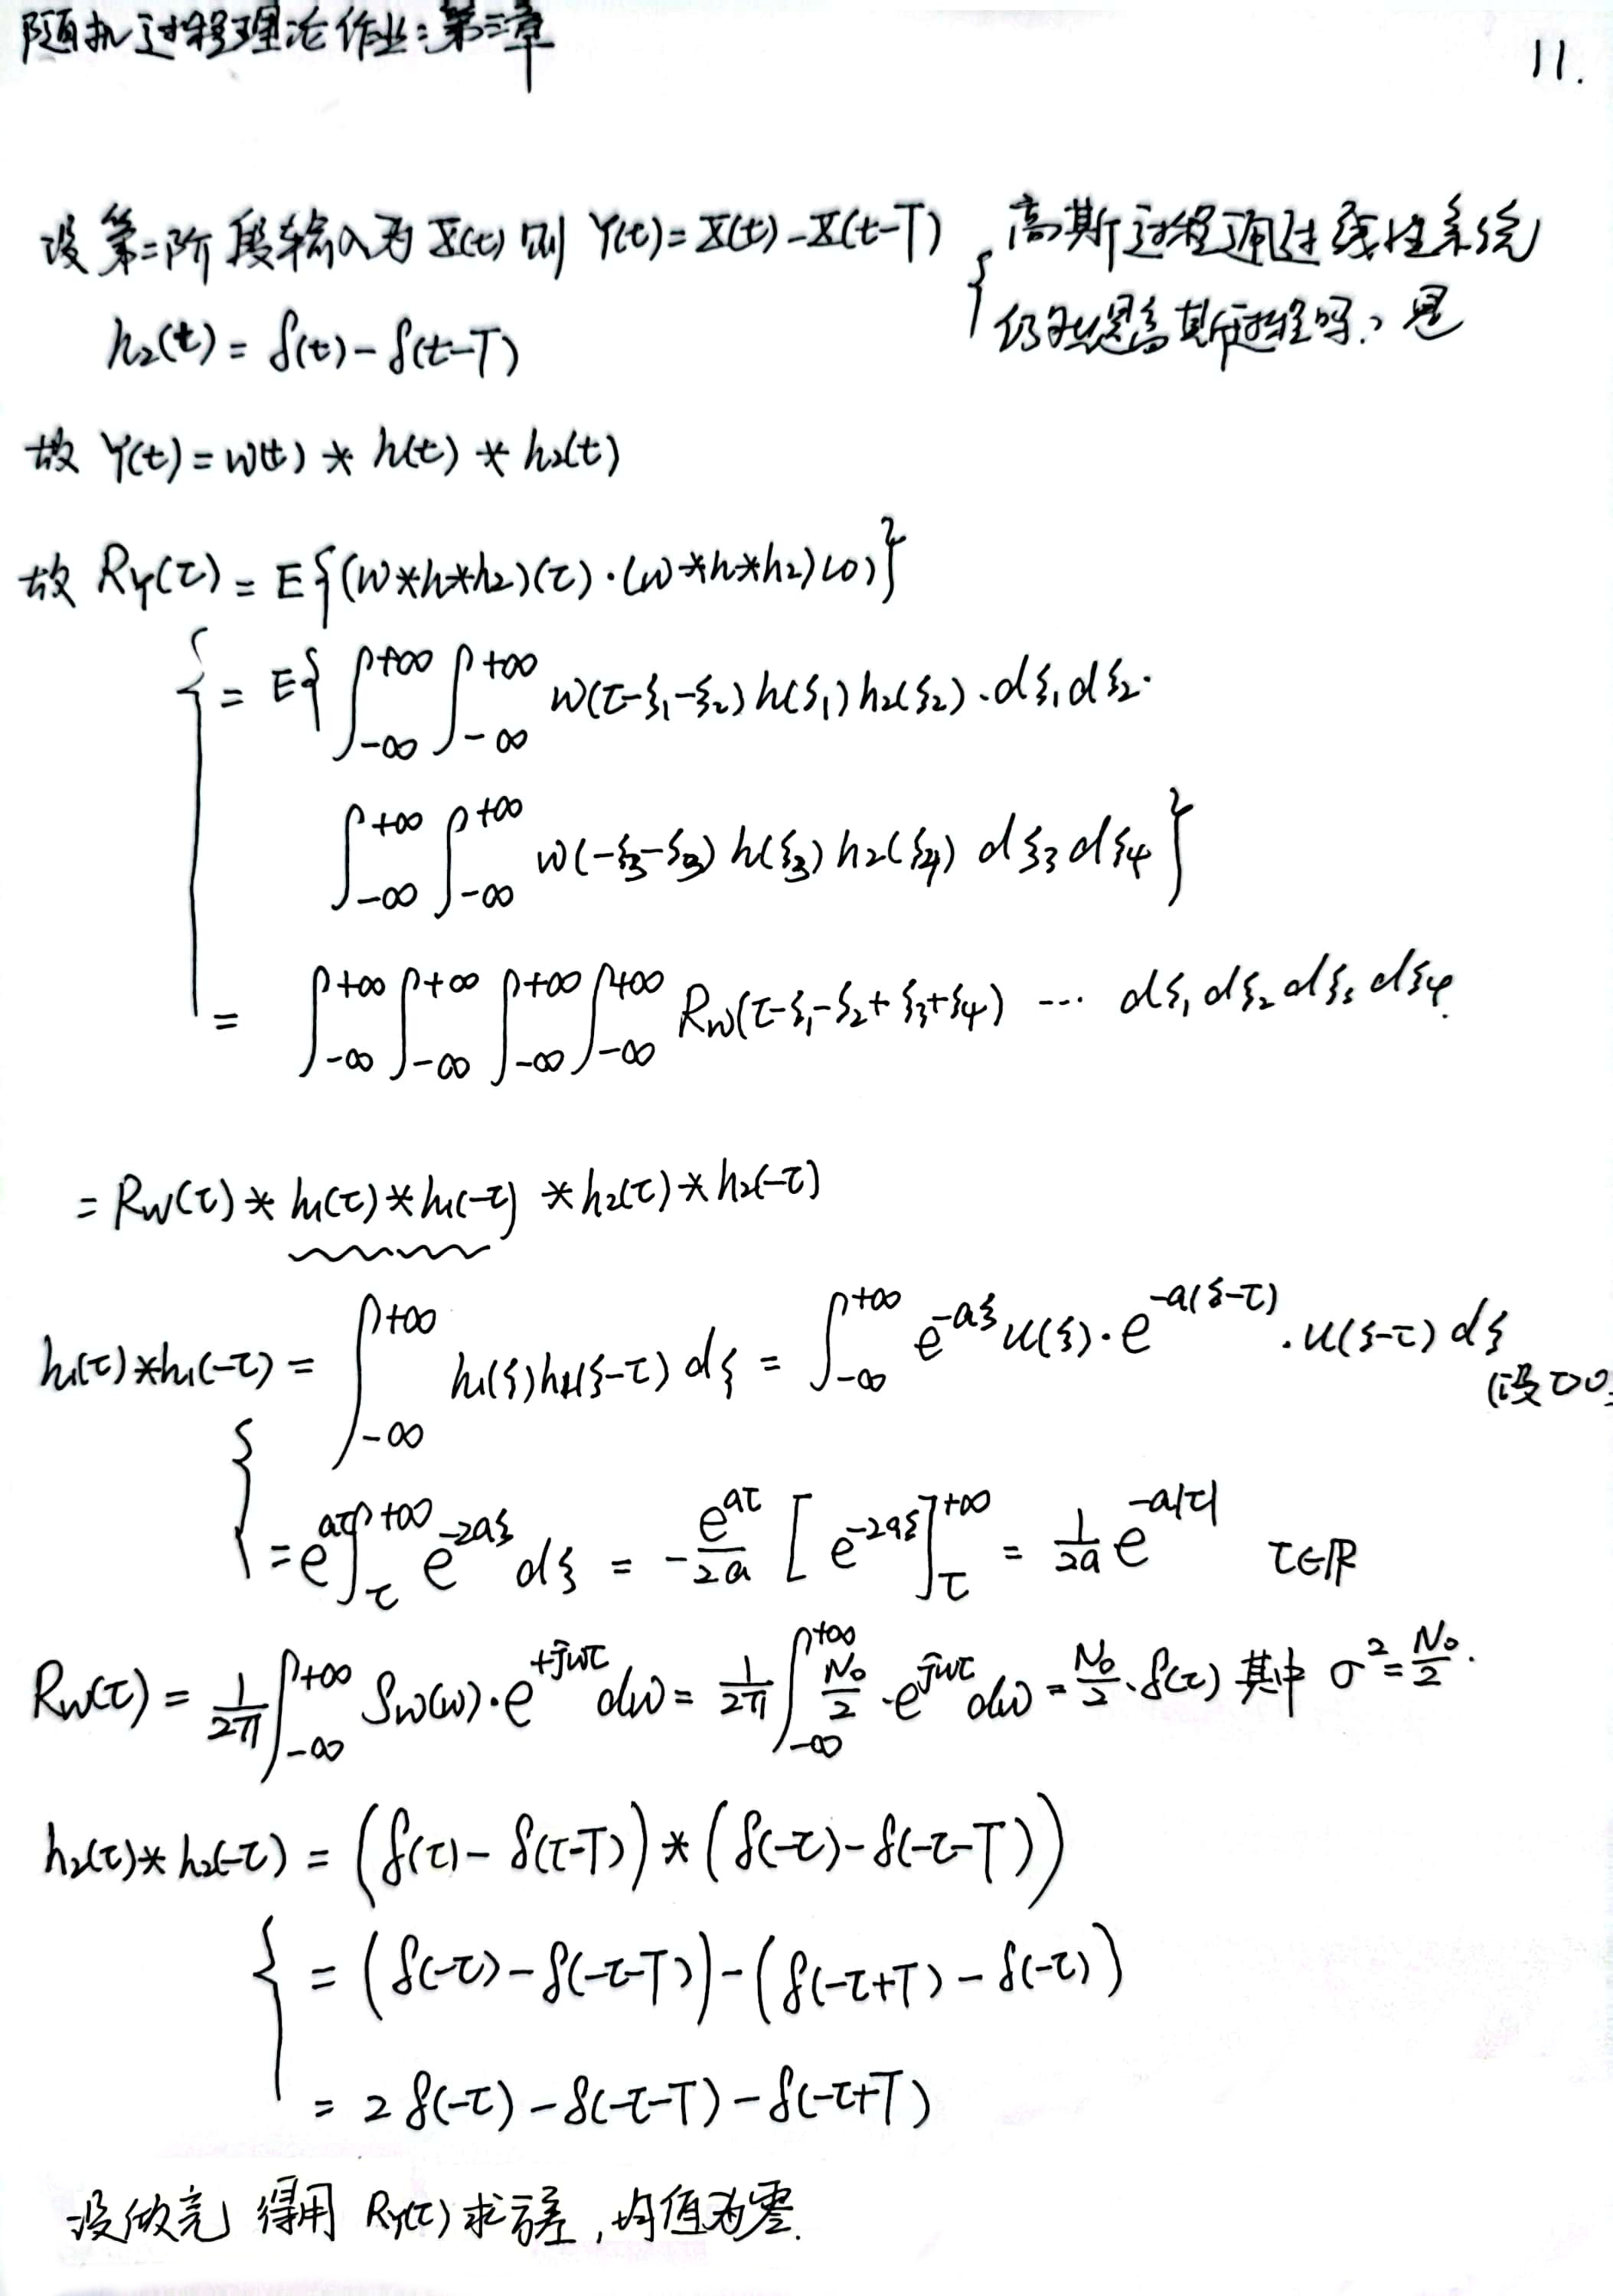 随机过程理论作业:第三章
11.
设第二阶段输入为X(t) 则 Y(t)=X(t)-X(t-T) { 高斯过程通过线性系统
h₂(t)=δ(t)-δ(t-T) 仍然是高斯过程吗? 是
故 Y(t)=W(t) * h(t) * h₂(t)
故 R_Y(τ) = E{(W*h*h₂)(τ)·(W*h*h₂)(0)}
{ = E{ ∫_{-∞}^{+∞} ∫_{-∞}^{+∞} W(τ-ξ₁-ξ₂) h(ξ₁) h₂(ξ₂)·dξ₁dξ₂·
∫_{-∞}^{+∞} ∫_{-∞}^{+∞} W(-ξ₃-ξ₃) h(ξ₃) h₂(ξ₄) dξ₃ dξ₄ }
= ∫_{-∞}^{+∞} ∫_{-∞}^{+∞} ∫_{-∞}^{+∞} ∫_{-∞}^{+∞} R_W(τ-ξ₁-ξ₂+ξ₃+ξ₄) ··· dξ₁ dξ₂ dξ₃ dξ₄.
= R_W(τ) * h₁(τ) * h₁(-τ) * h₂(τ) * h₂(-τ)
h₁(τ)*h₁(-τ) = ∫_{-∞}^{+∞} h₁(ξ)h₁(ξ-τ) dξ = ∫_{-∞}^{+∞} e^{-aξ} u(ξ)·e^{-a(ξ-τ)}·u(ξ-τ) dξ
(设τ>0)
{ = e^{aτ} ∫_{τ}^{+∞} e^{-2aξ} dξ = -e^{aτ}/2a [e^{-2aξ}]_{τ}^{+∞} = 1/2a e^{-a|τ|} τ∈ℝ
R_W(τ) = 1/2π ∫_{-∞}^{+∞} S_W(ω)·e^{+jωτ} dω = 1/2π ∫_{-∞}^{+∞} N₀/2·e^{jωτ} dω = N₀/2·δ(τ) 其中 σ²=N₀/2.
h₂(τ)*h₂(-τ) = (δ(τ)-δ(τ-T)) * (δ(-τ)-δ(-τ-T))
{ = (δ(-τ)-δ(-τ-T))-(δ(-τ+T)-δ(-τ))
= 2δ(-τ)-δ(-τ-T)-δ(-τ+T)
没做完 得用 R_Y(τ) 求方差,均值为零.